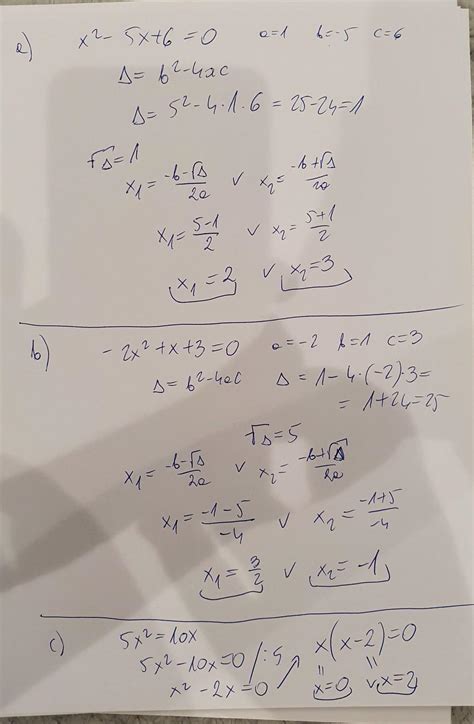 a) x² - 5x + 6 = 0 a=1 b=-5 c=6
Δ = b² - 4ac
Δ = 5² - 4·1·6 = 25-24 = 1
√Δ = 1
x₁ = (-b-√Δ)/2a ∨ x₂ = (-b+√Δ)/2a
x₁ = (5-1)/2 ∨ x₂ = (5+1)/2
x₁ = 2 ∨ x₂ = 3
b) -2x² + x + 3 = 0 a=-2 b=1 c=3
Δ = b² - 4ac Δ = 1 - 4·(-2)·3 =
= 1+24 = 25
√Δ = 5
x₁ = (-b-√Δ)/2a ∨ x₂ = (-b+√Δ)/2a
x₁ = (-1-5)/-4 ∨ x₂ = (-1+5)/-4
x₁ = 3/2 ∨ x₂ = -1
c) 5x² = 10x
5x² - 10x = 0 /:5
x² - 2x = 0
x(x-2) = 0
x=0 ∨ x=2